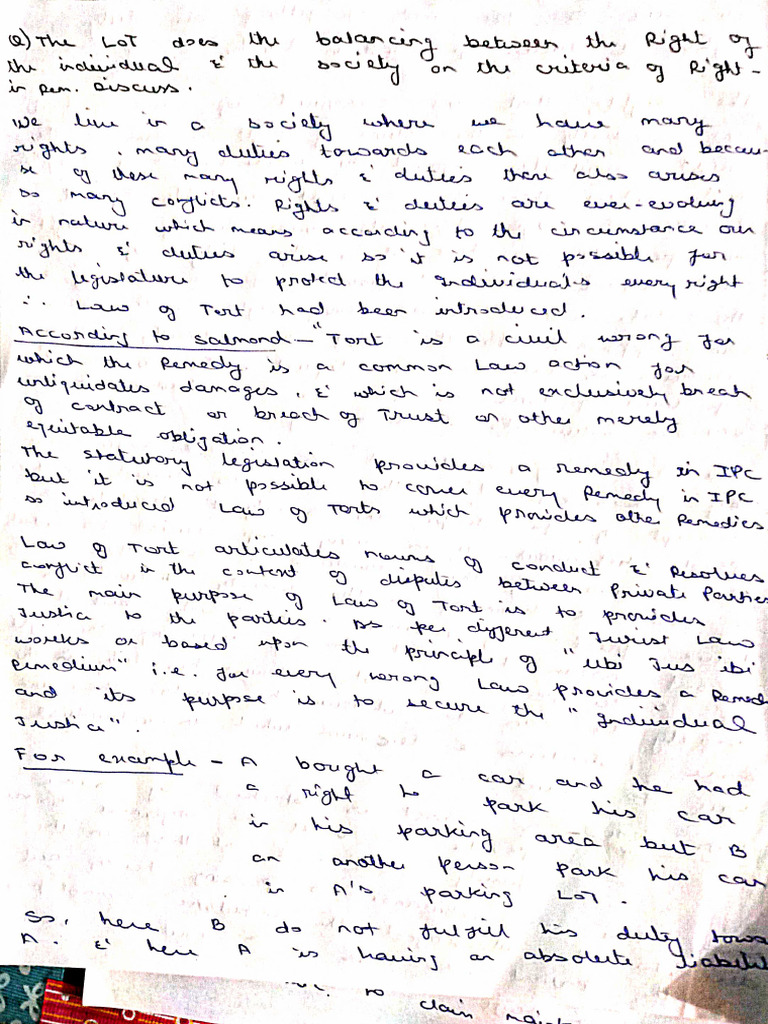 Q) The LOT does the balancing between the Right of
the individual & the society on the criteria of Right-
in Rem. Discuss.
We live in a society where we have many
rights, many duties towards each other and becau-
se of these many rights & duties there also arises
so many conflicts. Rights & duties are ever-evolving
in nature which means according to the circumstance our
rights & duties arise so it is not possible for
the legislature to protect the individuals every right
∴ Law of Tort had been introduced.
According to Salmond - "Tort is a civil wrong for
which the Remedy is a common Law action for
unliquidates damages, & which is not exclusively break
of contract or breach of Trust or other merely
equitable obligation.
The statutory legislation provides a remedy in IPC
but it is not possible to cover every Remedy in IPC
so introduced Law of Torts which provides other Remedies
Law of Tort articulates norms of conduct & Resolves
conflict in the context of disputes between Private Parties
The main purpose of Law of Tort is to provides
Justice to the parties. As per different Jurist Law
works or based upon the principle of "Ubi Jus ibi
Remedium" i.e. for every wrong Law provides a Remed
and its purpose is to secure the "Individual
Justice".
For example - A bought a car and he had
a right to park his car
in his parking area but B
an another person park his car
in A's parking LOT.
So, here B do not fulfill his duty towa
A. & here A is having an absolute liabilit
to claim